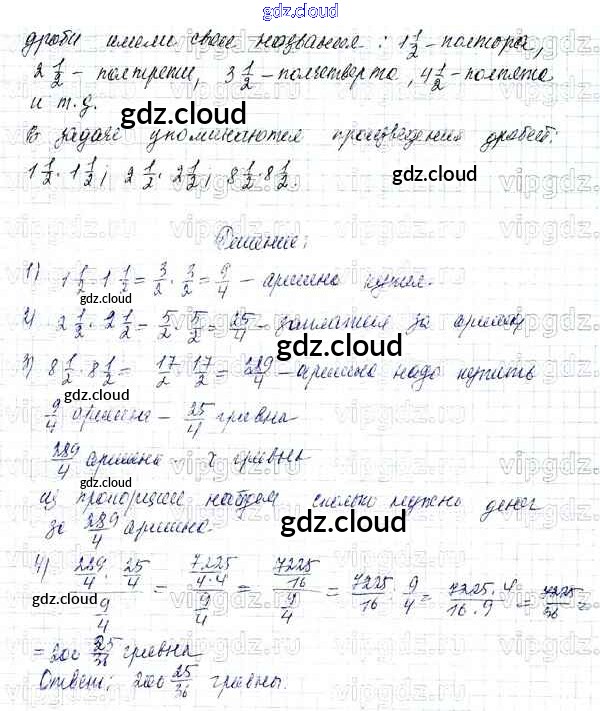 gdz.cloud
дроби имели свои названия: 1 1/2 - полтора,
2 1/2 - полтрети, 3 1/2 - полчетверта, 4 1/2 - полпята
и т.д.
gdz.cloud
В задаче упоминаются произведения дробей:
1 1/2 · 1 1/2; 2 1/2 · 2 1/2; 8 1/2 · 8 1/2.
gdz.cloud
Решение:
1) 1 1/2 · 1 1/2 = 3/2 · 3/2 = 9/4 - аршина купил.
gdz.cloud
2) 2 1/2 · 2 1/2 = 5/2 · 5/2 = 25/4 - заплатил за аршины
gdz.cloud
3) 8 1/2 · 8 1/2 = 17/2 · 17/2 = 289/4 - аршина надо купить
9/4 аршина - 25/4 гривна
gdz.cloud
289/4 аршина - x гривна
из пропорции найдем сколько нужно денег
за 289/4 аршина.
gdz.cloud
4) (289/4 · 25/4)/(9/4) = (7225/(4·4))/(9/4) = (7225/16)/(9/4) = 7225/16 · 9/4 = (7225 · 4)/(16 · 9) = 7225/36 =
gdz.cloud
= 200 25/36 гривна
Ответ: 200 25/36 гривны.
gdz.cloud